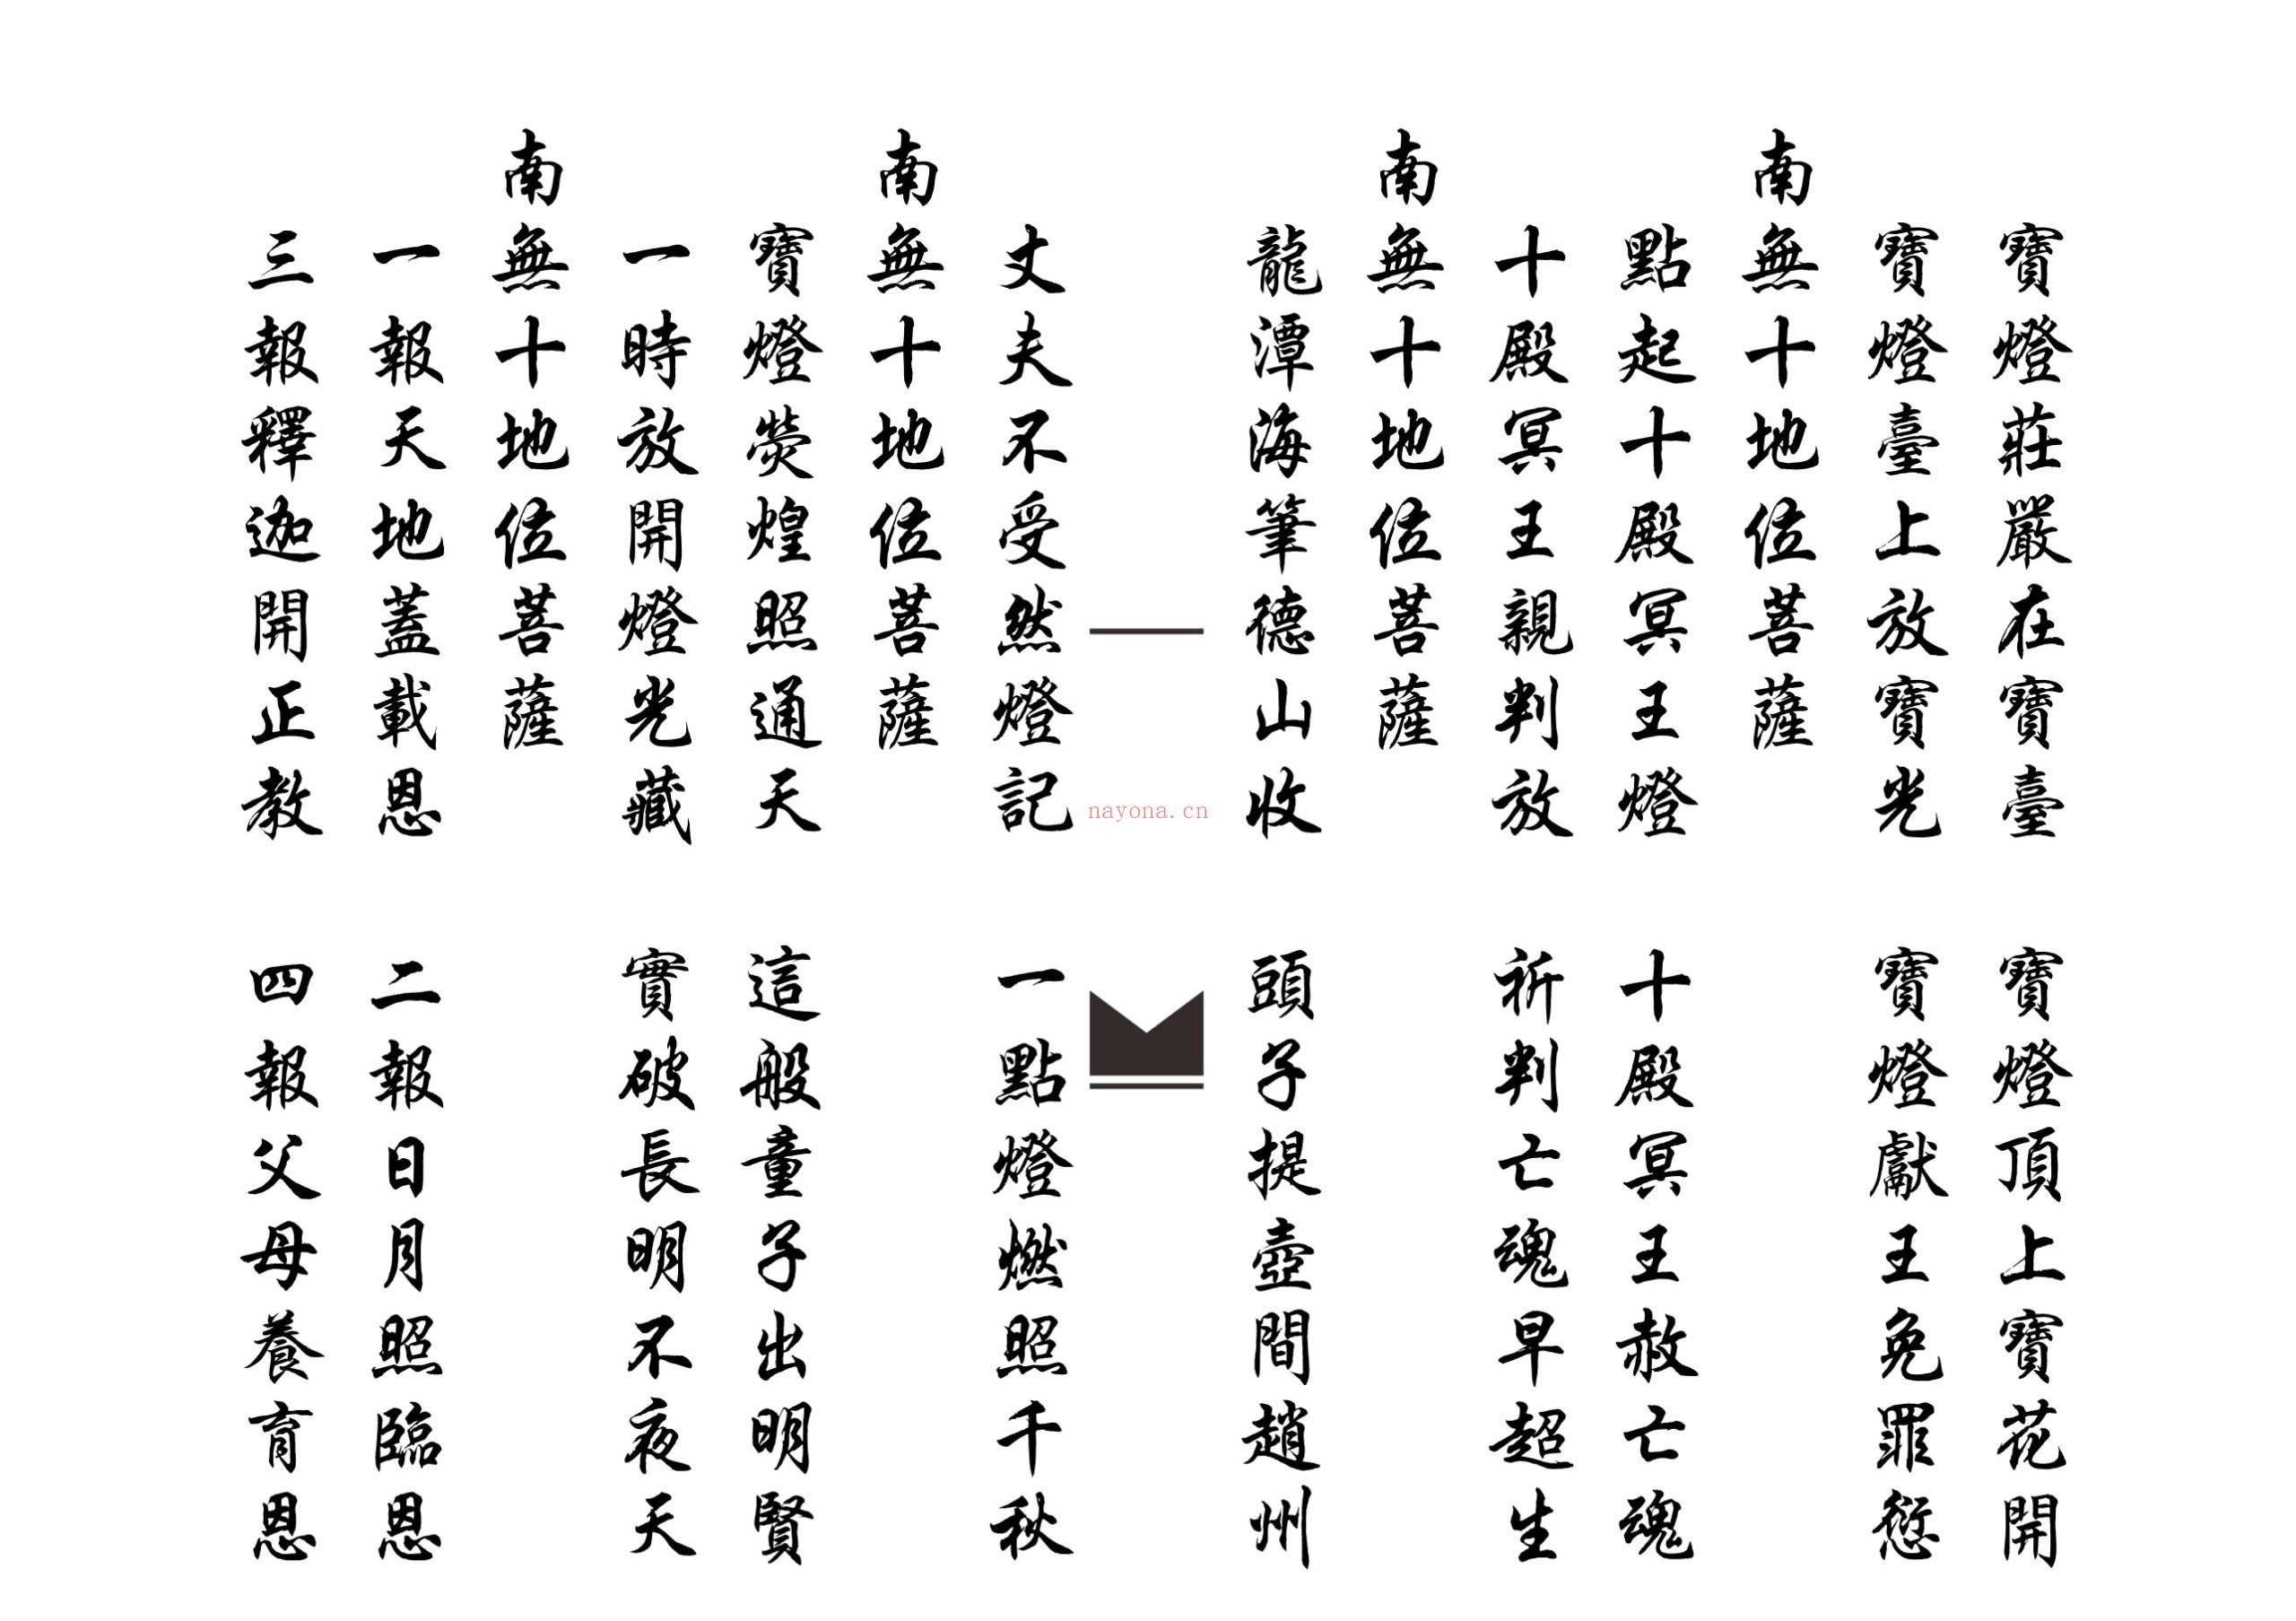 寶燈莊嚴在寶臺 寶燈頂上寶花開
寶燈臺上放寶光 寶燈獻王免罪愆
南無十地位菩薩
點起十殿冥王燈 十殿冥王赦亡魂
十殿冥王親判放 祈判亡魂早超生
南無十地位菩薩
龍潭海筆德山收 頭子提壺間趙州
丈夫不受然燈記 一點燈燃照千秋
南無十地位菩薩
寶燈熒煌照通天 這般童子出明賢
一時放開燈光藏 實破長明不夜天
南無十地位菩薩
一報天地蓋載恩 二報日月照臨恩
三報釋迦開正教 四報父母養育恩
nayona.cn